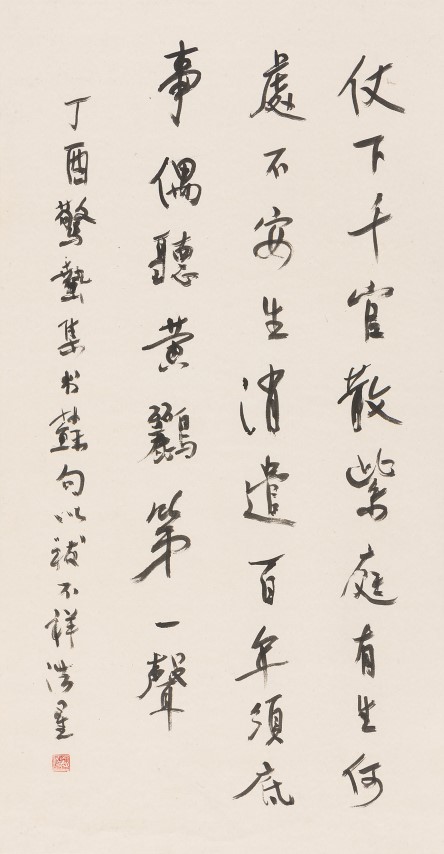 仗下千官散紫庭有生何
處不安生消遣百年須底
事偶聽黄鸝第一聲
丁酉驚蟄集书蘇句以祓不祥浩星